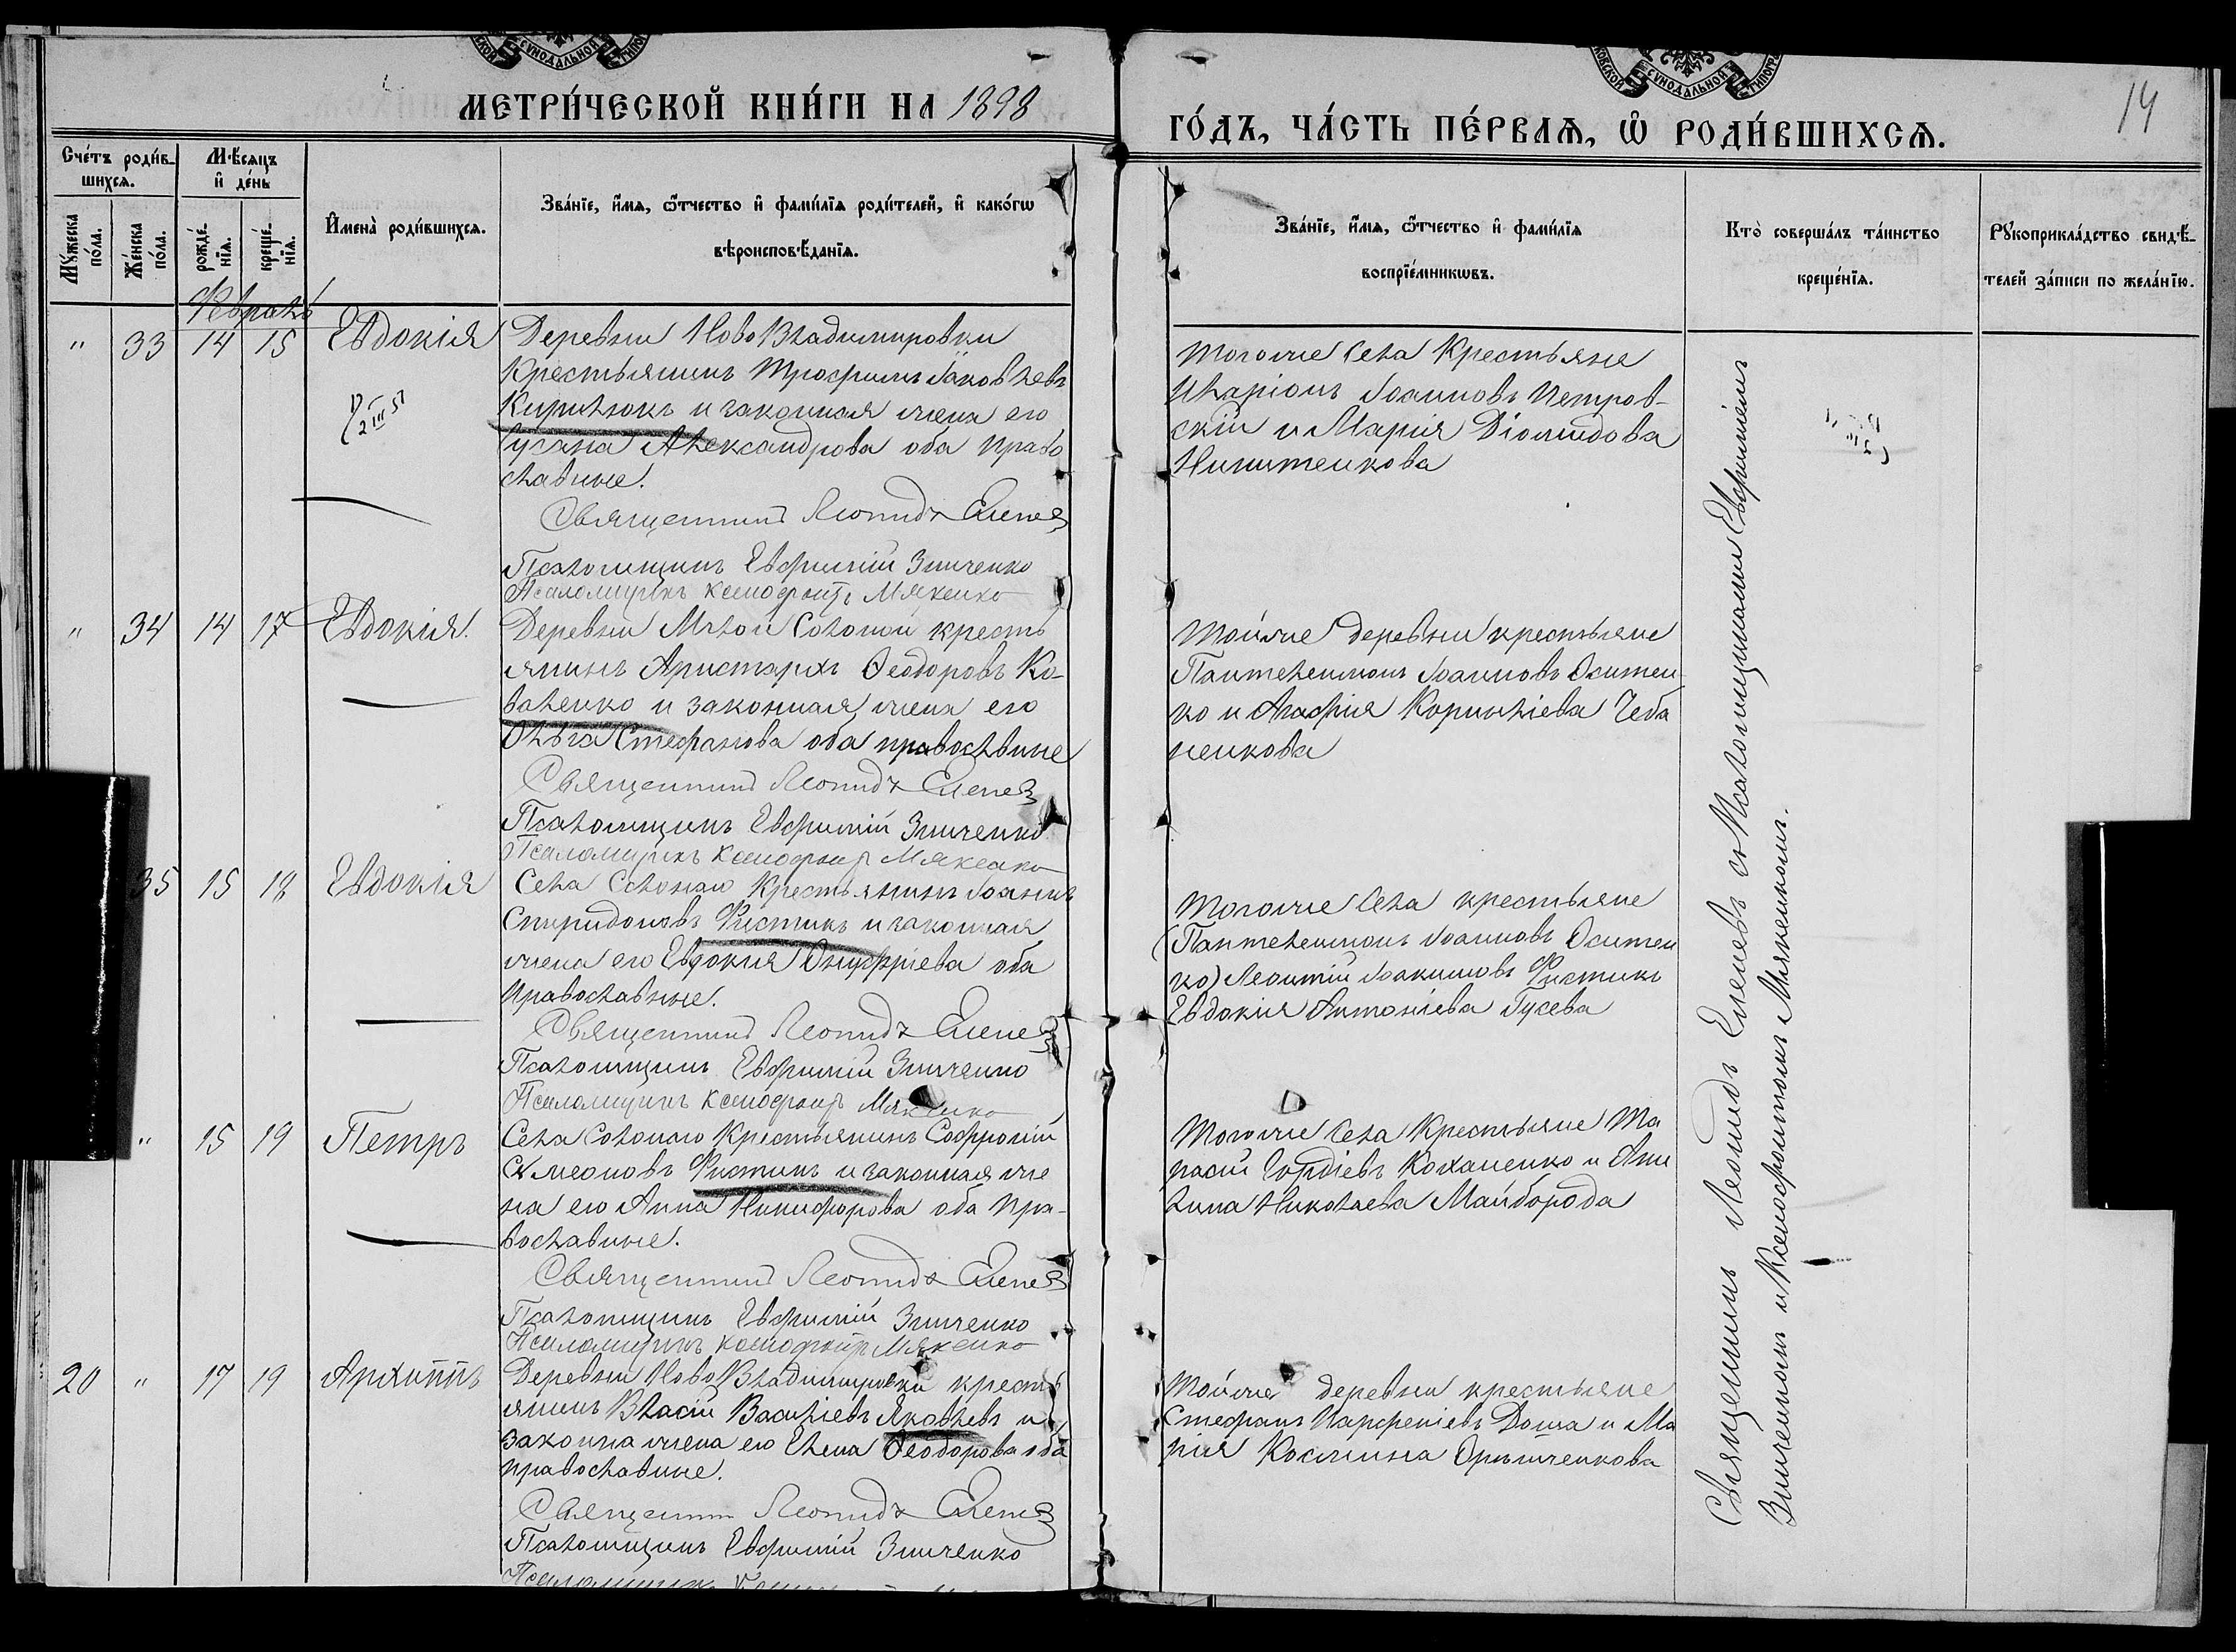 МЕТРИ́ЧЕСКОЙ КНИ́ГИ НА 1898
ГО́ДЪ, ЧА́СТЬ ПЕ́РВАѦ, Ѽ РОДИ́ВШИХСѦ.
14
Сче́тъ роди́в-
шихсѧ.
Мѣ́сѧцъ
и҆ де́нь
Мꙋ́жеска
по́ла.
Же́нска
по́ла.
рожде́-
нїѧ.
креще́-
нїѧ.
И҆мена̀ роди́вшихсѧ.
Зва́нїе, и҆́мѧ, ѻ҆́тчество и҆ фами́лїѧ роди́телей, и҆ како́гѡ
вѣроисповѣ́данїѧ.
Зва́нїе, и҆́мѧ, ѻ҆́тчество и҆ фами́лїѧ
воспрїе́мникѡвъ.
Кто̀ соверша́лъ та́инство
креще́нїѧ.
Рꙋкоприкла́дство свидѣ́-
телей за́писи по жела́нїю.
Февраль
" 33 14 15 Евдокія
Деревни НовоВладимировки
Крестьянинъ Трофимъ Іаковлевъ
Кирилюкъ и законная жена его
Сусана Александрова оба право
славные.
Священникъ Леонидъ Еленев
Псаломщикъ Евфимій Зинченко
Псаломщикъ Ксенофонтъ Мякенко
Тогоже села Крестьяне
Иларіонъ Іоанновъ Петров-
скій и Марія Діомидова
Никитенкова
" 34 14 17 Евдокія.
Деревни Малой Солоной кресть
янинъ Аристархъ Ѳеодоровъ Ко-
валенко и законная жена его
Ольга Стефанова оба православные
Священникъ Леонидъ Еленев
Псаломщикъ Евфимій Зинченко
Псаломщикъ Ксенофонтъ Мякенко
Тойже деревни крестьяне
Пантелеимонъ Іоанновъ Оситен
ко и Агафія Корниліева Чеба
ненкова
35 15 18 Евдокія
Села Солонаго Крестьянинъ Іоаннъ
Спиридоновъ Фистикъ и законная
жена его Евдокия Онуфріева оба
православные.
Священникъ Леонидъ Еленев
Псаломщикъ Евфимій Зинченко
Псаломщикъ Ксенофонтъ Мякенко
Тогоже села крестьяне
(Пантелеимонъ Іоанновъ Оситен
ко) Леонтій Іоакимовъ Фистикъ
Евдокія Антоніева Гусева
" 15 19 Петръ
Села Солонаго Крестьянинъ Софроній
Симеоновъ Фистикъ и законная же
на его Анна Никифорова оба пра-
вославные.
Священникъ Леонидъ Еленев
Псаломщикъ Евфимій Зинченко
Псаломщикъ Ксенофонтъ Мякенко
Тогоже села Крестьяне Та
расій Гордіевъ Коханенко и Аки
лина Николаева Майборода
20 " 17 19 Архиппъ
Деревни НовоВладимировки кресть
янинъ Власій Васильевъ Яковлевъ и
законна жена его Елена Ѳеодорова оба
православные.
Священник Леонидъ Еленев
Псаломщикъ Евфимій Зинченко
Тойже деревни крестьяне
Стефанъ Парфеніевъ Доша и Ма
рія Космина
Священникъ Леонидъ Еленевъ съ Псаломщиками Евфиміемъ
Зинченкомъ и Ксенофонтомъ Мякенкомъ.